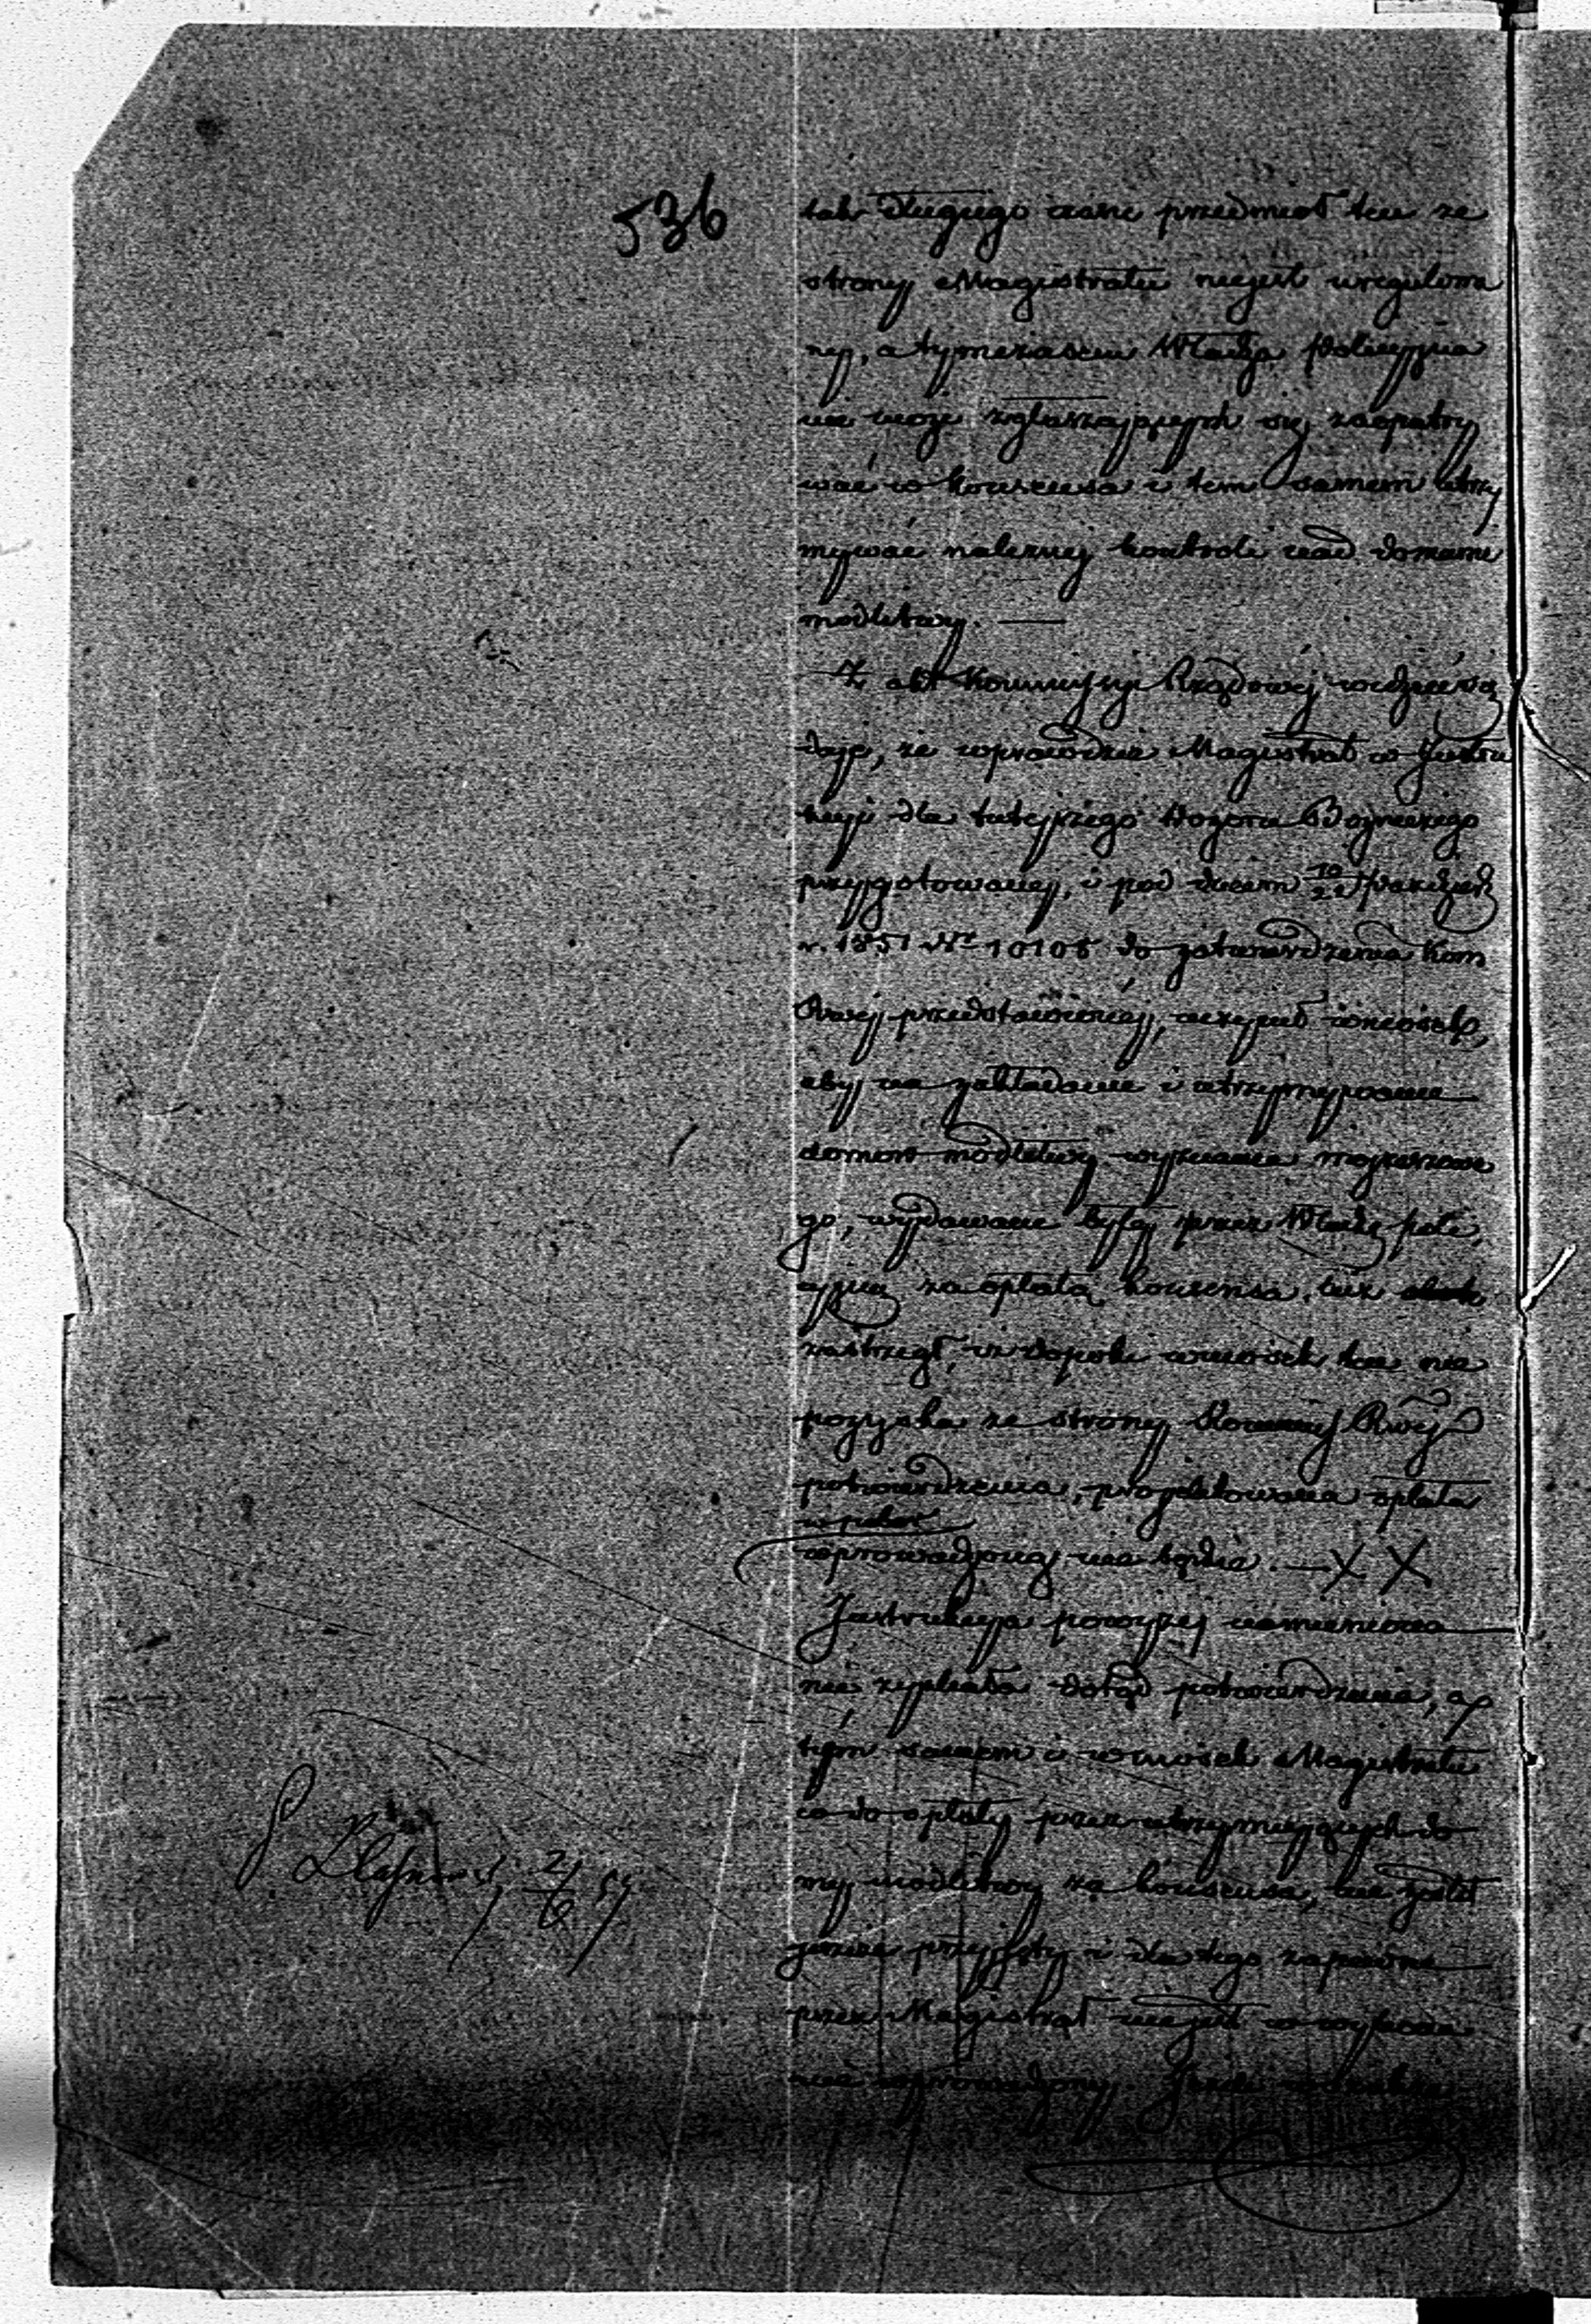 536
tak długiego czasu przedmiot ten ze
strony Magistratu niejest uregulowa
ny, a tymczasem Władza Policyjna
nie może zgłaszających się zaopatry
wać w konsensa i tem samem utrzy
mywać należnej kontroli nad domami
modlitwy. —
Z akt Kommissyi Rządowej widzieć się
daje, że wprawdzie Magistrat w Instru
kcyi dla tutejszego Dozoru Bożniczego
przygotowanej, i pod dniem 10/22 Paździer
r. 1851 Nr 10105 do zatwierdzenia Kom
Rwej przedstawionej, uczynił wniosek,
aby na zakładanie i utrzymywanie
domów modlitwy wyznania mojżeszowe
go, wydawane były przez Władzę poli
cyjną za opłatą konsensa, lecz
zastrzegł, iż dopóki wniosek ten nie
pozyska ze strony Kommiss Rwej
potwierdzenia, projektowana opłata
wprowadzoną nie będzie. — X X
Instrukcyja powyżej namieniona
nie zyskała dotąd potwierdzenia, a
tym samem i wniosek Magistratu
co do opłaty przez utrzymujących do
my modlitwy za konsensa, nie został
jeszcze przyjęty i dla tego zapewne
przez Magistrat niejest w wykona
nie wprowadzony.